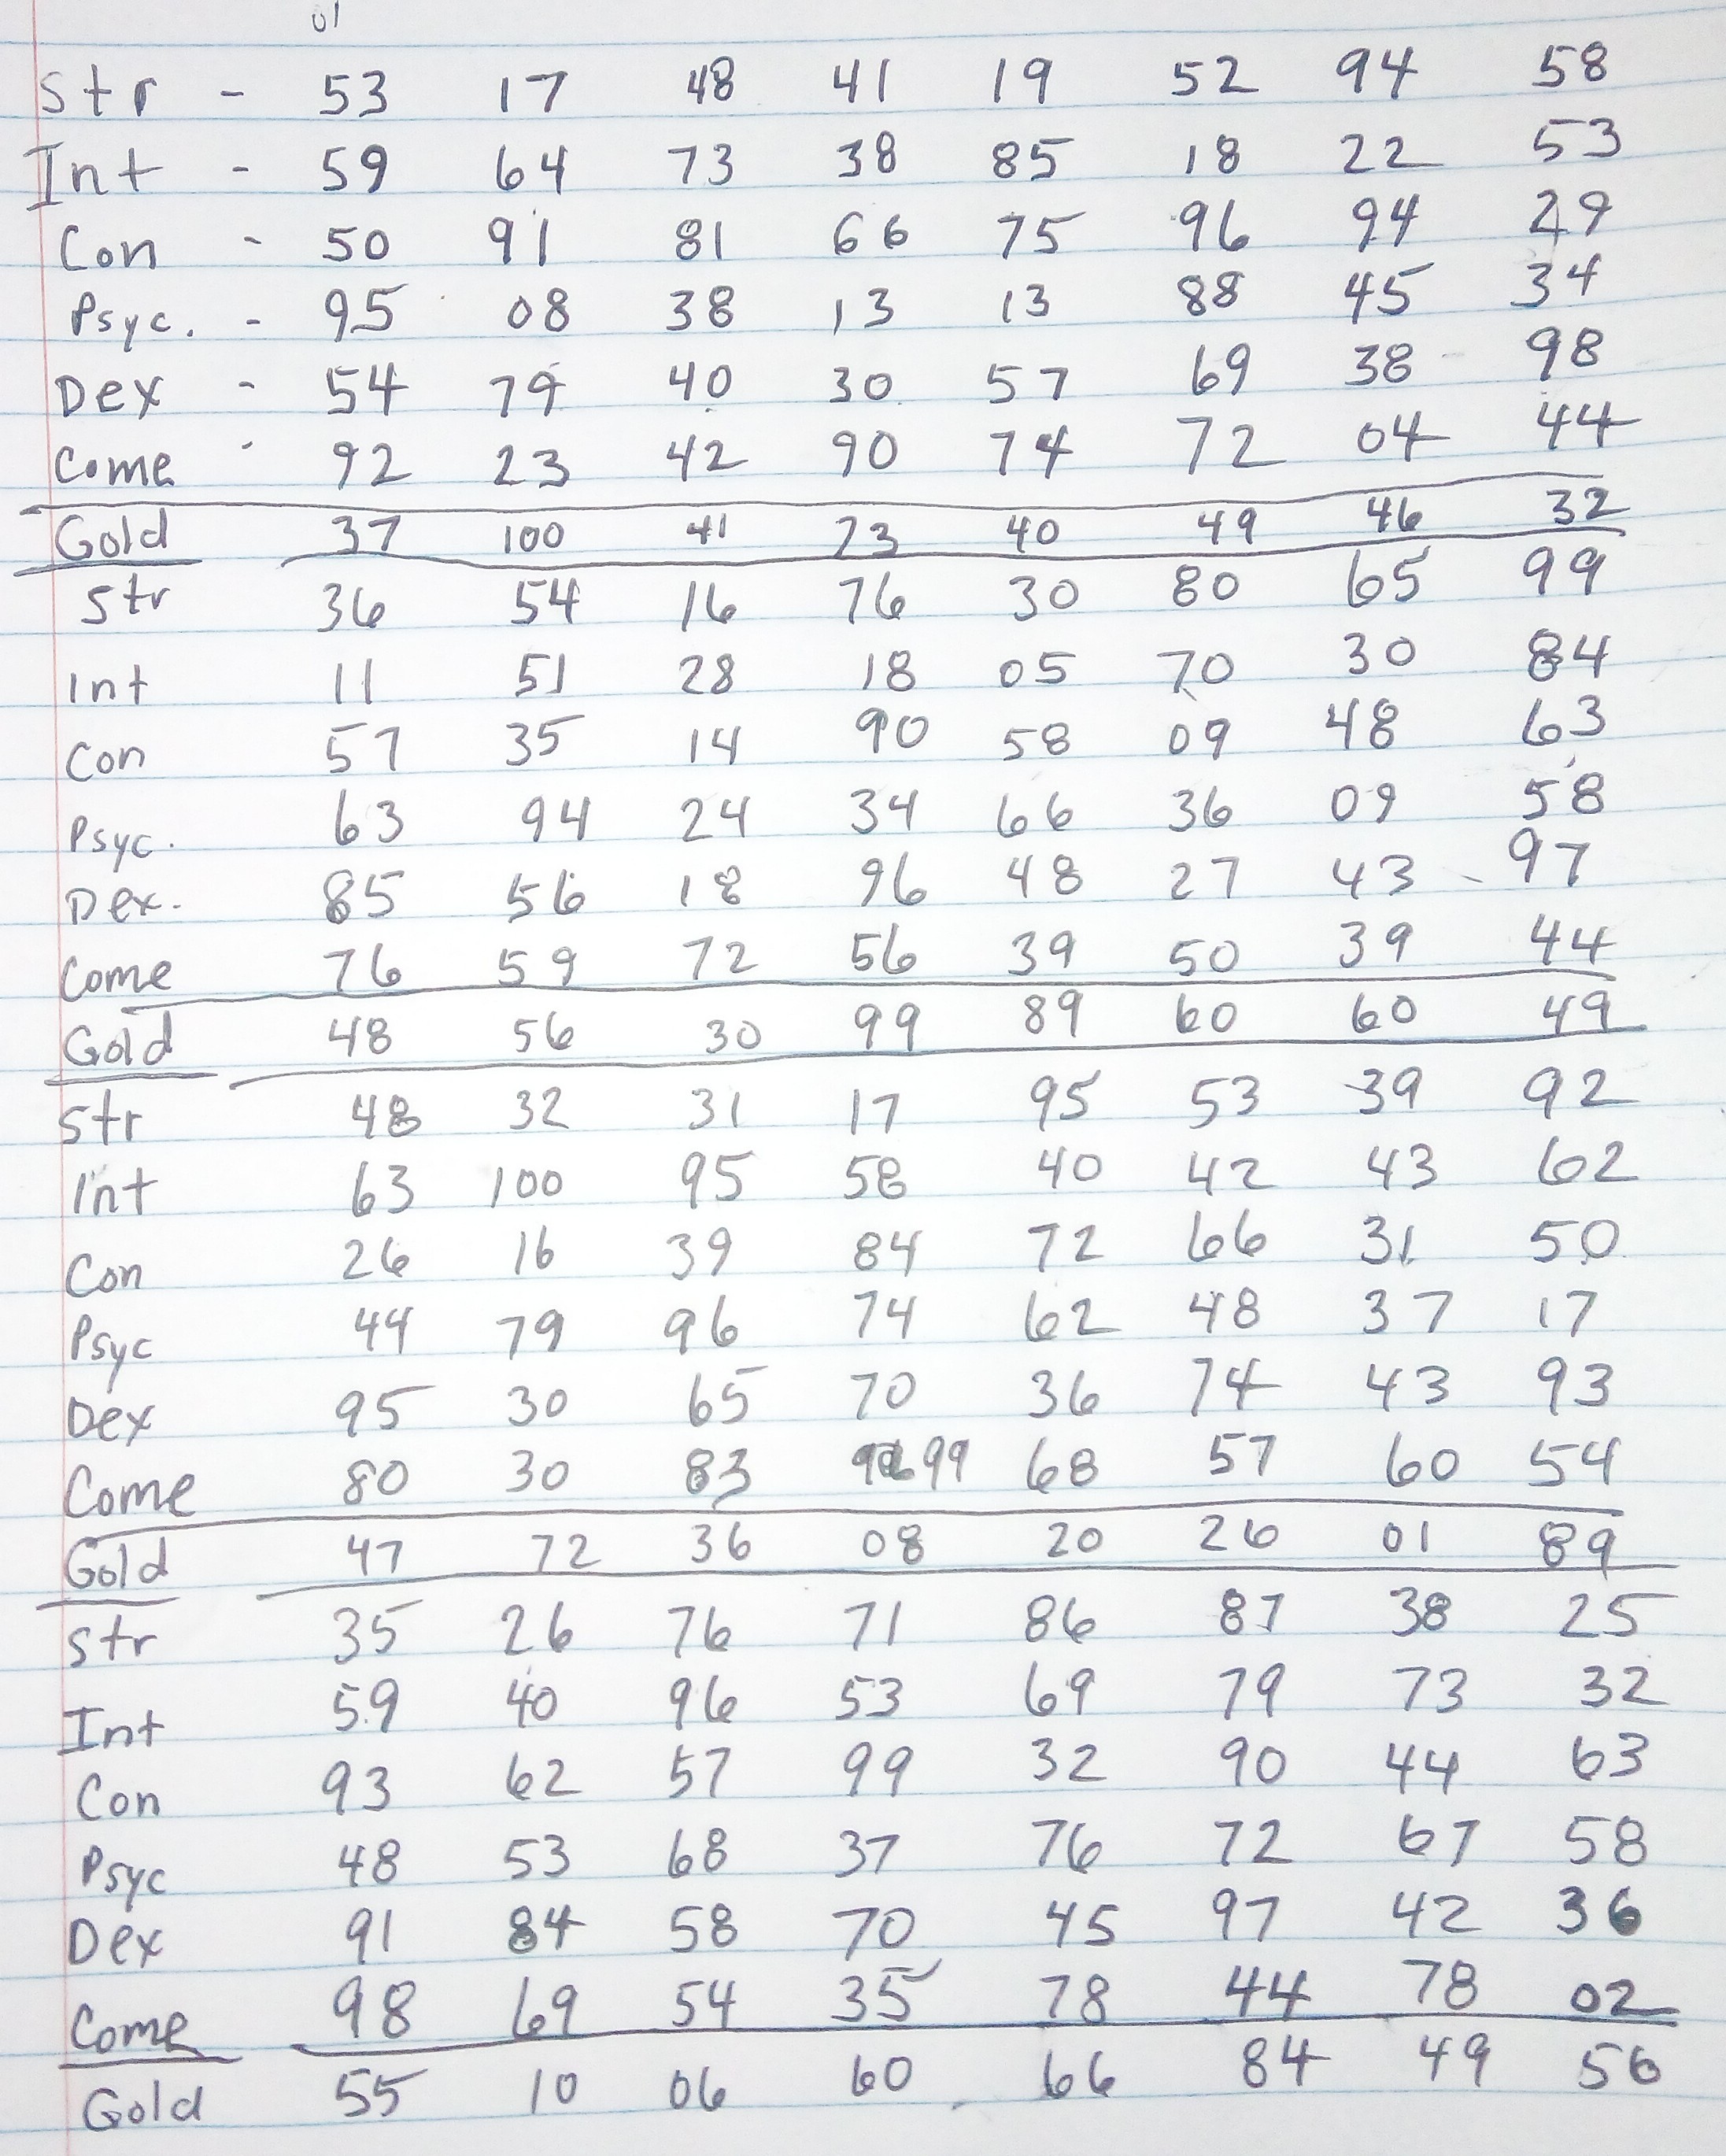 01
Str - 53 17 48 41 19 52 94 58
Int - 59 64 73 38 85 18 22 53
Con - 50 91 81 66 75 96 94 29
Psyc. - 95 08 38 13 13 88 45 34
Dex - 54 79 40 30 57 69 38 98
Come - 92 23 42 90 74 72 04 44
Gold 37 100 41 73 40 49 46 32
Str 36 54 16 76 30 80 65 99
Int 11 51 28 18 05 70 30 84
Con 57 35 14 90 58 09 48 63
Psyc. 63 94 24 34 66 36 09 58
Dex. 85 56 18 96 48 27 43 97
Come 76 59 72 56 39 50 39 44
Gold 48 56 30 99 89 60 60 49
Str 48 32 31 17 95 53 39 92
Int 63 100 95 58 40 42 43 62
Con 26 16 39 84 72 66 31 50
Psyc 44 79 96 74 62 48 37 17
Dex 95 30 65 70 36 74 43 93
Come 80 30 83 99 68 57 60 54
Gold 47 72 36 08 20 26 01 89
Str 35 26 76 71 86 87 38 25
Int 59 40 96 53 69 79 73 32
Con 93 62 57 99 32 90 44 63
Psyc 48 53 68 37 76 72 67 58
Dex 91 84 58 70 45 97 42 36
Come 98 69 54 35 78 44 78 02
Gold 55 10 06 60 66 84 49 56